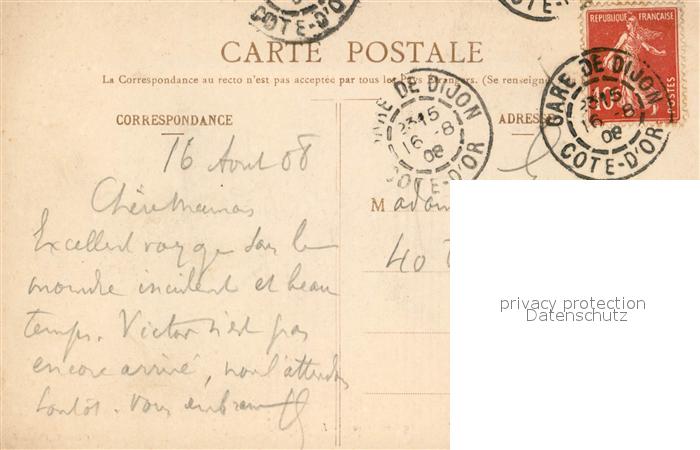 COTE-D'OR
COTE-D'
CARTE POSTALE
La Correspondance au recto n'est pas acceptée par tous les Pays Etrangers. (Se renseigne
REPUBLIQUE FRANÇAISE
10
POSTES
GARE DE DIJON
23 15
16 -8
08
COTE-D'OR
GARE DE DIJON
23 15
16 -8
08
COTE-D'OR
CORRESPONDANCE
ADRESSE
16 Aout 08
Chère Maman
Excellent voyage sans le
moindre incident et beau
temps. Victor n'est pas
encore arrivé, nous l'attendons
tantôt. Vous embrasse
Madam
40
privacy protection
Datenschutz